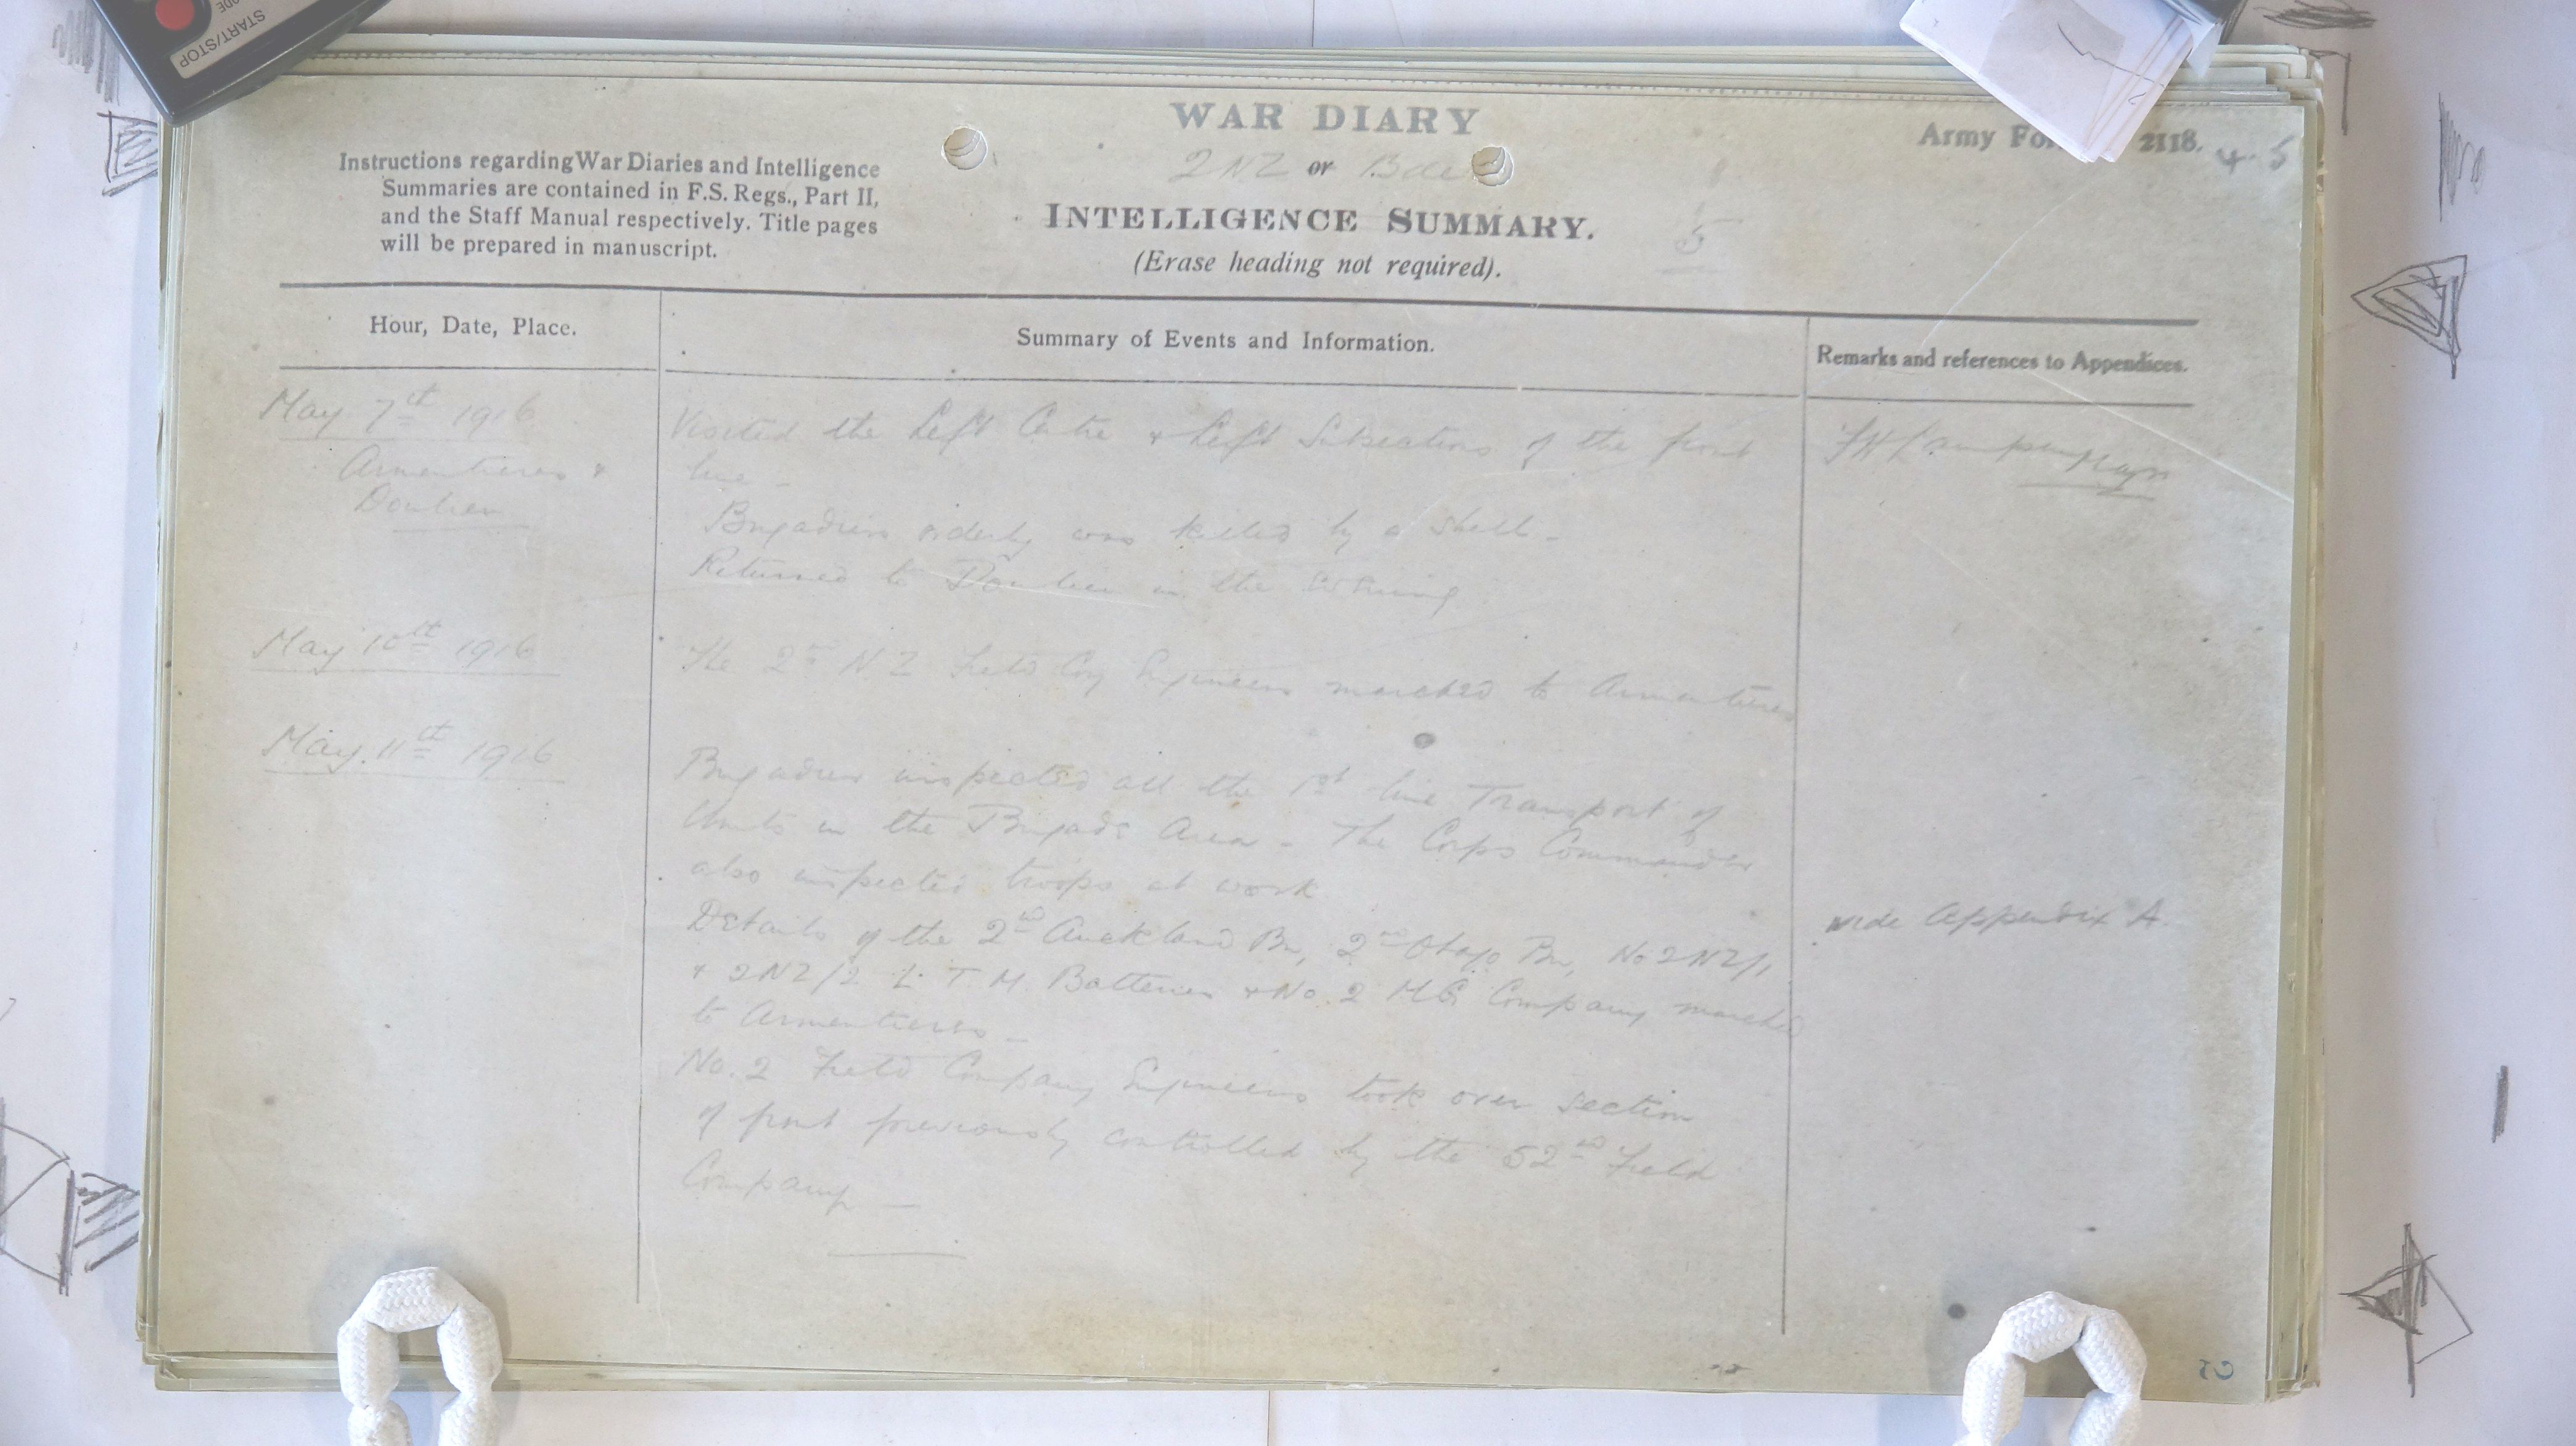 START/STOP
WAR DIARY
Army Fo 2118. 4.5
Instructions regarding War Diaries and Intelligence
Summaries are contained in F.S. Regs., Part II,
and the Staff Manual respectively. Title pages
will be prepared in manuscript.
2 NZ or Bde
INTELLIGENCE SUMMARY.
5
(Erase heading not required).
Hour, Date, Place.
Summary of Events and Information.
Remarks and references to Appendices.
May 7th 1916
Armentieres &
Doulieu
Visited the Left Centre & Left Subsections of the front
line -
Brigadiers orderly was killed by a shell -
Returned to Doulieu in the evening
Major
May 10th 1916
The 2nd NZ Field Coy Engineers marched to Armentieres
May 11th 1916
Brigadier inspected all the 1st line Transport of
Units in the Brigade Area - The Corps Commander
also inspected troops at work
Details of the 2nd Auckland Bn, 2nd Otago Bn, No 2NZ/1
& 2NZ/2 L. T. M. Batteries & No. 2 MG Company marched
to Armentieres -
vide Appendix A.
No. 2 Field Company Engineers took over section
of front previously controlled by the 52nd Field
Company -